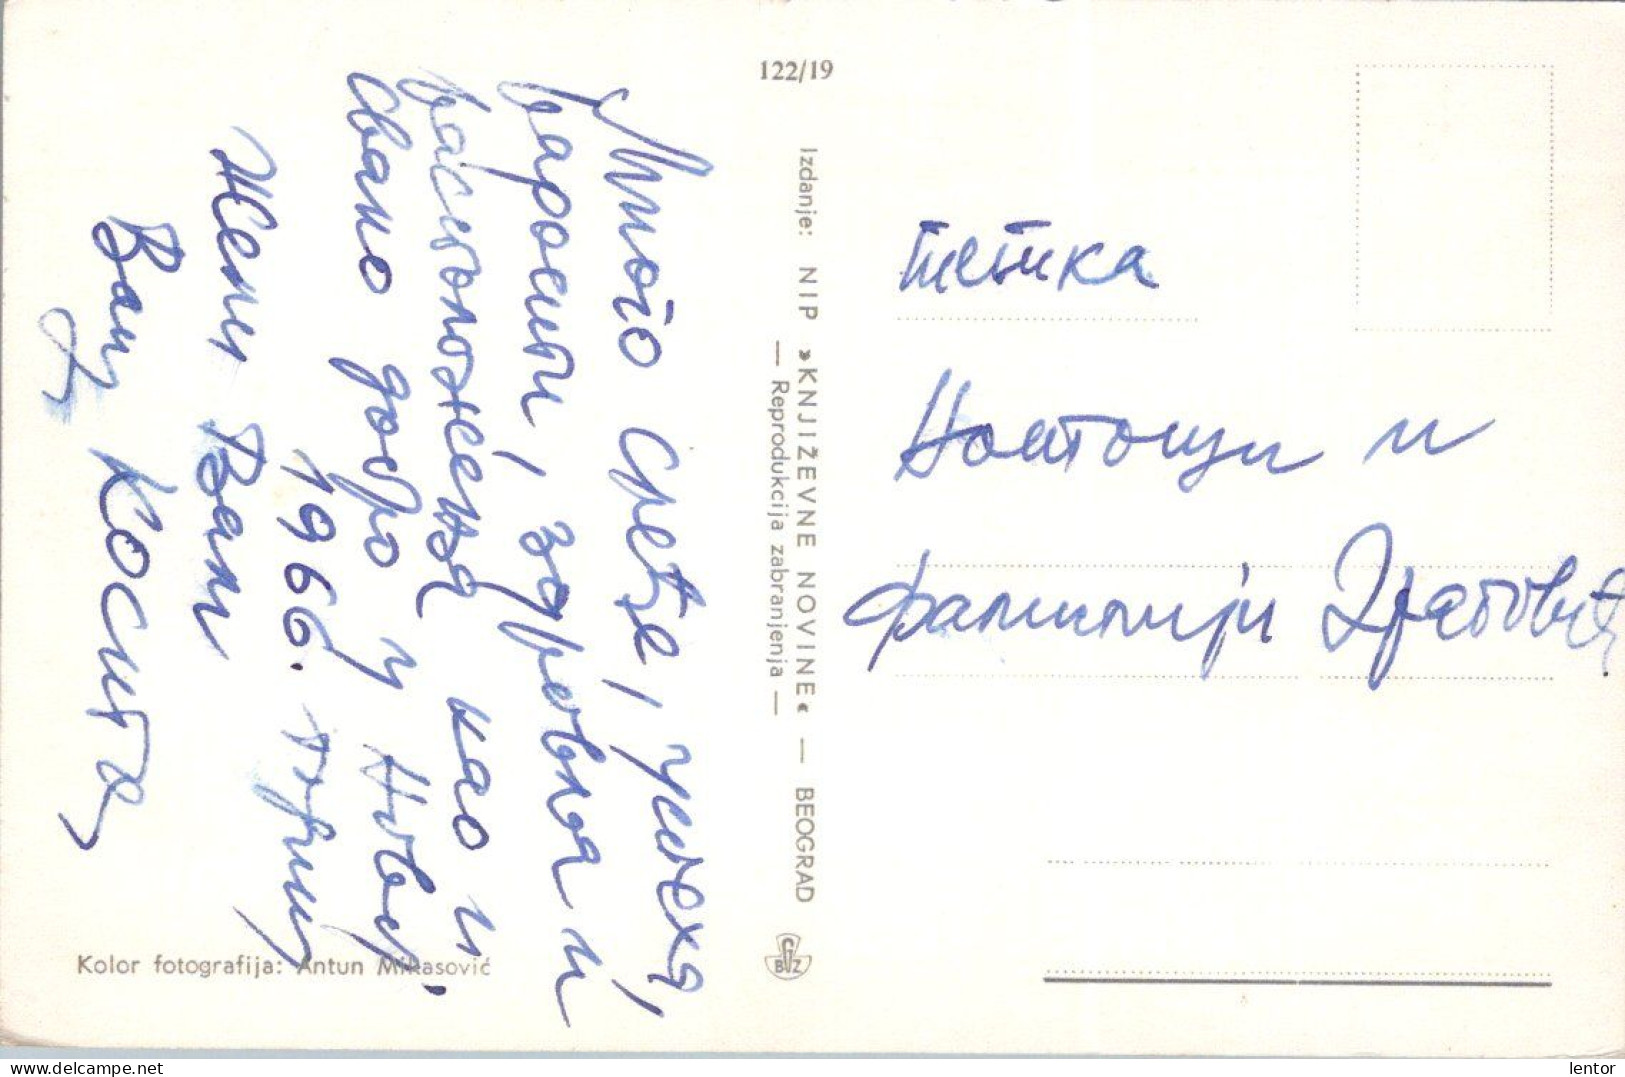 122/19
Много среће, успеха,
радости, здравља и
расположења као и
свако добро у Новој
1966. години
Жели Вам
Ваш Коста
Izdanje: NIP »KNJIŽEVNE NOVINE« — BEOGRAD
— Reprodukcija zabranjenja —
CBZ
Kolor fotografija: Antun Mikasović
тетка
и
фамилији
www.delcampe.net
lentor